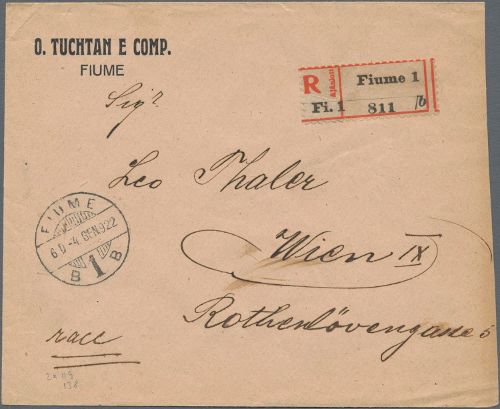 O. TUCHTAN E COMP.
FIUME
R
Ajánlott
Fi. 1
Fiume 1
811 /b
Sigr.
Leo Thaler
Wien IX
Rothenlövengasse 5
FIUME
6 D -4. GEN. 922
B 1 B
race